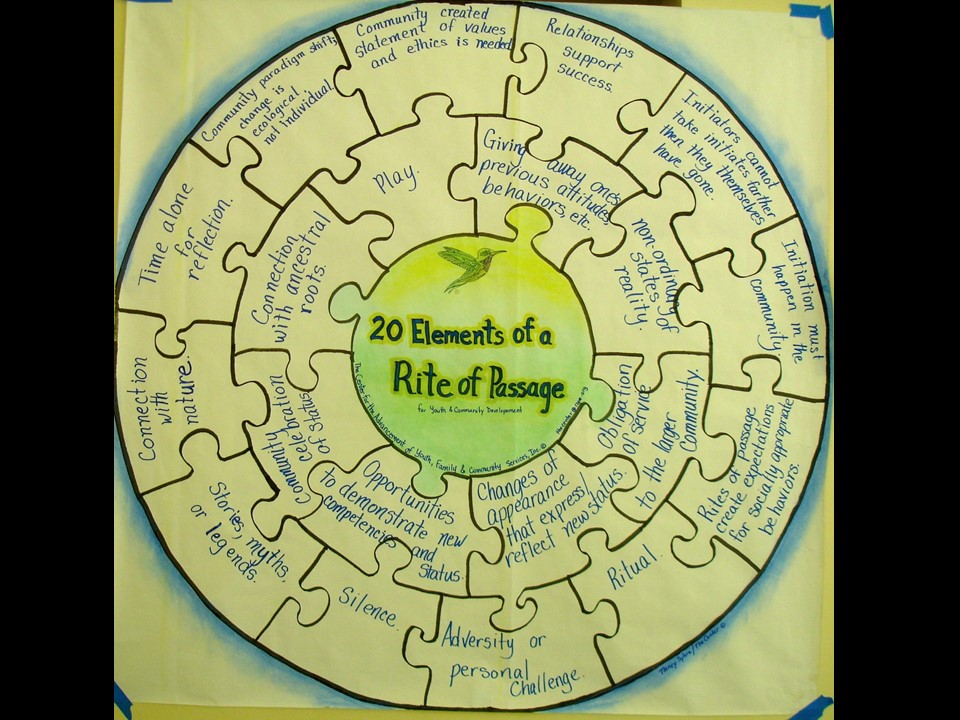 20 Elements of a
Rite of Passage
for Youth & Community Development
The Center for the Advancement of Youth, Family & Community Services, Inc. ©
Community created
statement of values
and ethics is needed
Relationships
support
success.
Initiators cannot
take initiates farther
then they themselves
have gone.
Initiation must
happen in the
community.
Rites of passage
create expectations
for socially appropriate
behaviors.
Ritual.
Adversity or
personal
Challenge.
Silence.
Stories, myths,
or legends.
Connection
with
nature.
Time alone
for
reflection.
Community paradigm shift;
change is
ecological,
not individual.
Play.
Giving away ones
previous attitudes,
behaviors, etc.
non-ordinary
states of
reality.
Obligation
of service
to the larger
Community.
Changes of
appearance
that express/
reflect new status.
Opportunities
to demonstrate new
competencies and
Status.
Community
celebration
of Status
Connection
with ancestral
roots.